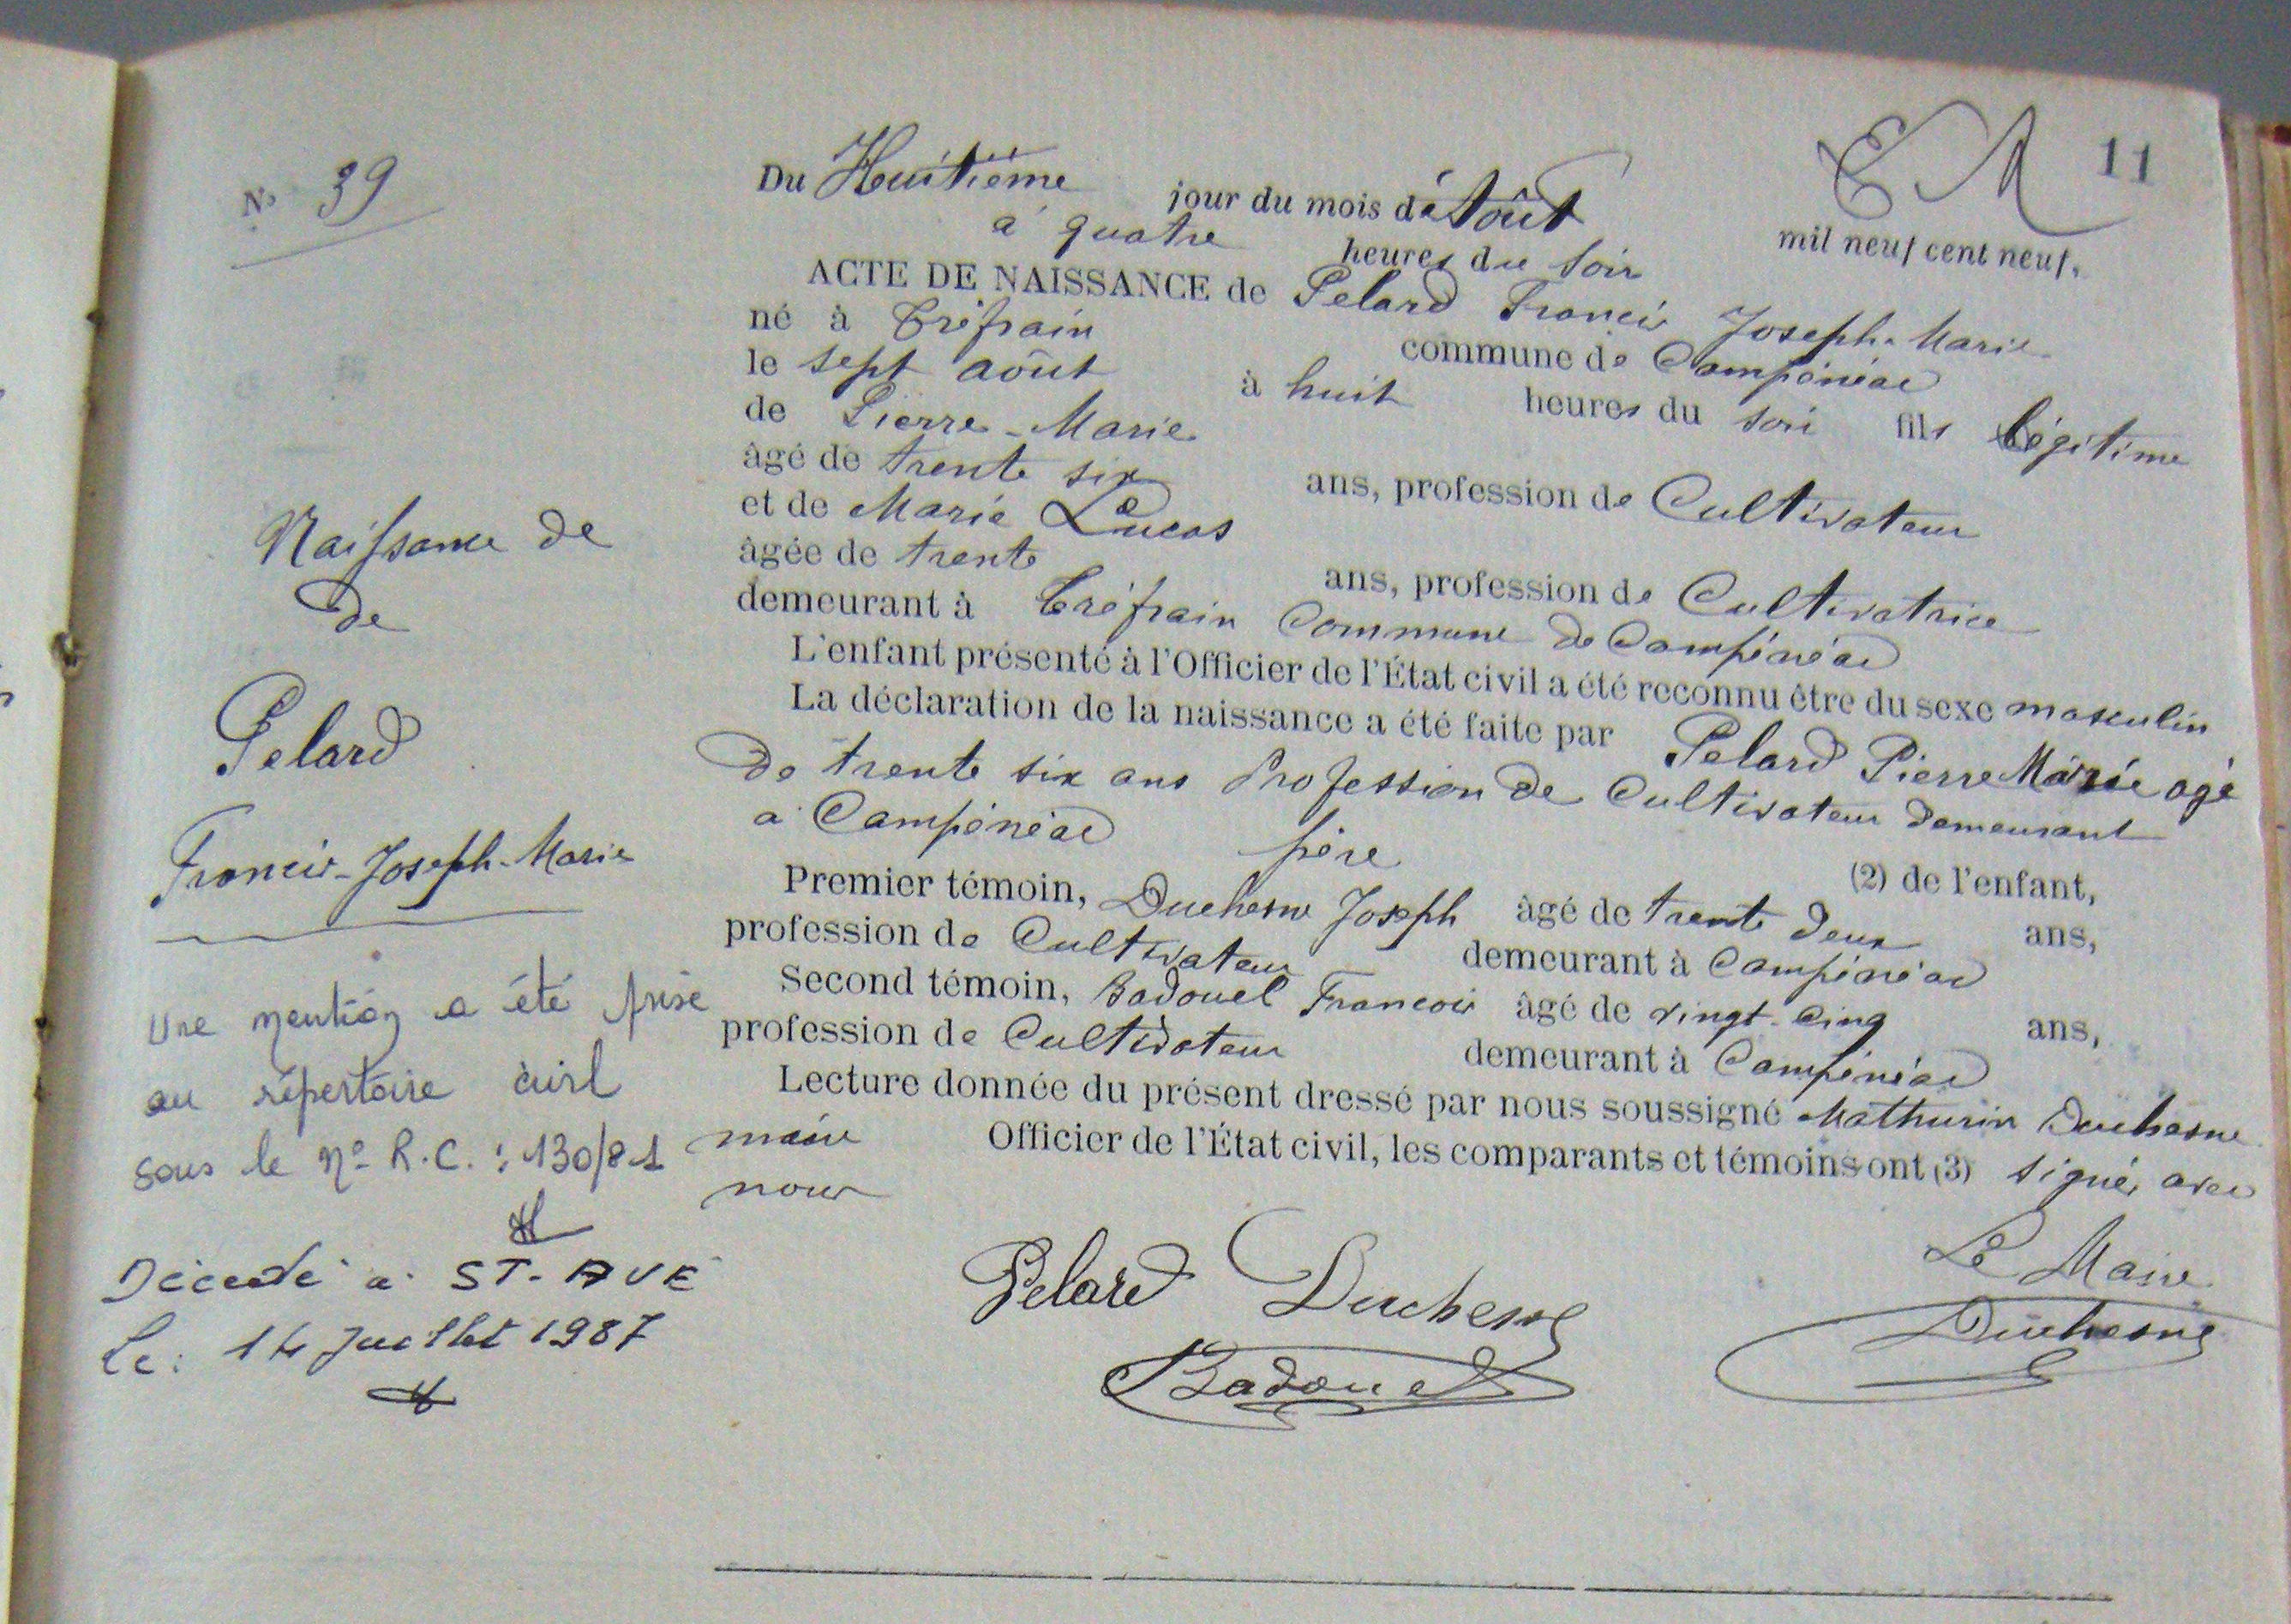 11
N° 39
Du Huitième jour du mois d'Août mil neuf cent neuf,
à quatre heures du soir
ACTE DE NAISSANCE de Pelard Francis Joseph-Marie
né à Tréfrain commune de Campénéac
le sept août à huit heures du soir fils légitime
de Pierre-Marie
âgé de trente six ans, profession de Cultivateur
et de Marie Lucas
âgée de trente ans, profession de Cultivatrice
demeurant à Tréfrain Commune de Campénéac
L'enfant présenté à l'Officier de l'État civil a été reconnu être du sexe masculin
La déclaration de la naissance a été faite par Pelard Pierre Marie agé
de trente six ans Profession de Cultivateur demeurant
à Campénéac père (2) de l'enfant,
Premier témoin, Duchesne Joseph âgé de trente deux ans,
profession de Cultivateur demeurant à Campénéac
Second témoin, Badouel Francois âgé de vingt-cinq ans,
profession de Cultivateur demeurant à Campénéac
Lecture donnée du présent dressé par nous soussigné Mathurin Duchesne
maire Officier de l'État civil, les comparants et témoins ont (3) signé, avec
nous
Pelard Duchesne Le Maire
Badouel Duchesne
Naissance de
de
Pelard
Francis-Joseph-Marie
Une mention a été prise
au répertoire civil
sous le n° R.C. : 130/81
Décédé à ST-AVE
le : 14 Juillet 1987